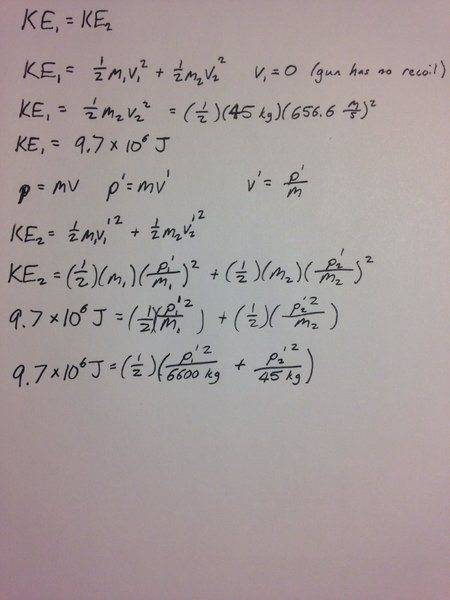 KE₁ = KE₂
KE₁ = ½m₁v₁² + ½m₂v₂² v₁ = 0 (gun has no recoil)
KE₁ = ½m₂v₂² = (½)(45 kg)(656.6 m/s)²
KE₁ = 9.7 × 10⁶ J
p = mv p' = mv' v' = p'/m
KE₂ = ½m₁v₁'² + ½m₂v₂'²
KE₂ = (½)(m₁)(p₁'/m₁)² + (½)(m₂)(p₂'/m₂)²
9.7 × 10⁶ J = (½)(p₁'²/m₁) + (½)(p₂'²/m₂)
9.7 × 10⁶ J = (½)(p₁'²/6600 kg + p₂'²/45 kg)